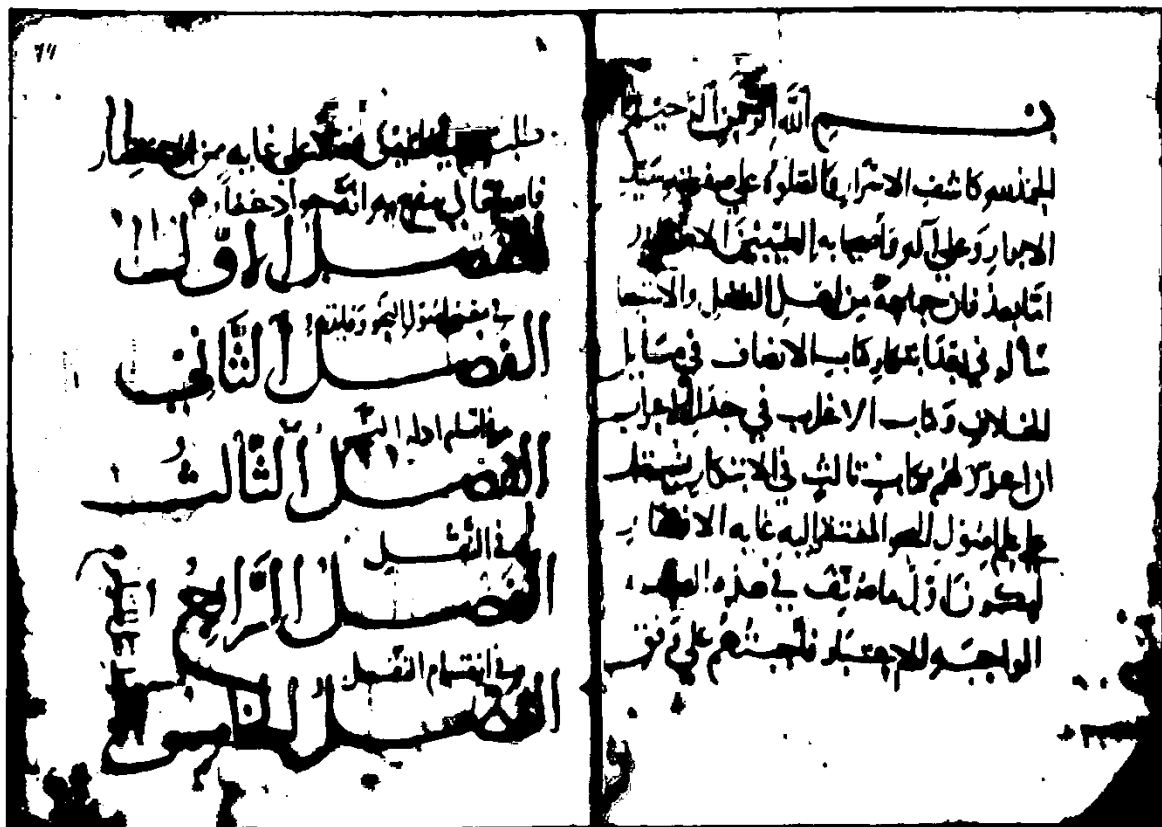 بسم الله الرحمن الرحيم
الحمد لله كاشف الاسرار والصلوة على صفيه سيد
الابرار وعلى آله وأصحابه الطيبين
امّا بعد فان جماعة من اهل الفضل والانتصار
سألوني بعد ابتكار كتاب الانصاف في مسايل
الخلاف وكتاب الاغراب في جدل الاعراب
ان اعزز لهم بكتاب ثالث في الابتكار يشتمل
على علم اصول النحو المفتقر إليه غايه الافتقار
ليكون اوّل ما صنّف في هذه
الواجبه للاعتبار فأجبتهم على وفق
٦٧
طلبتهم على غايه من الاختصار
فالله تعالى ينفع به انّه جواد غفار
الفصل الاول
في معنى اصول النحو وفايدته
الفصل الثاني
في اقسام ادله النحو
الفصل الثالث
في النقل
الفصل الرابع
في انقسام النقل
الفصل الخامس